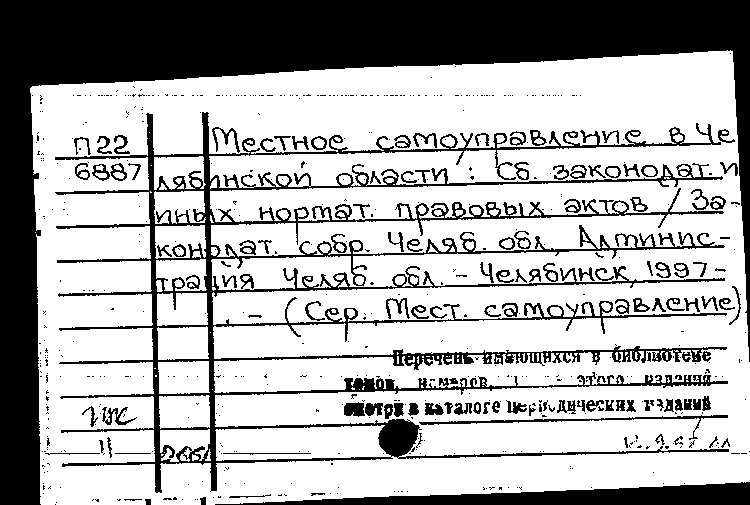 П22 Местное самоуправление в Че
6887 лябинской области : Сб. законодат. и
иных нормат. правовых актов / За-
конодат. собр. Челяб. обл., Админис-
трация Челяб. обл. - Челябинск, 1997-
. - (Сер. Мест. самоуправление)
Перечень имеющихся в библиотеке
томов, номеров, этого издания
смотри в каталоге периодических изданий
11